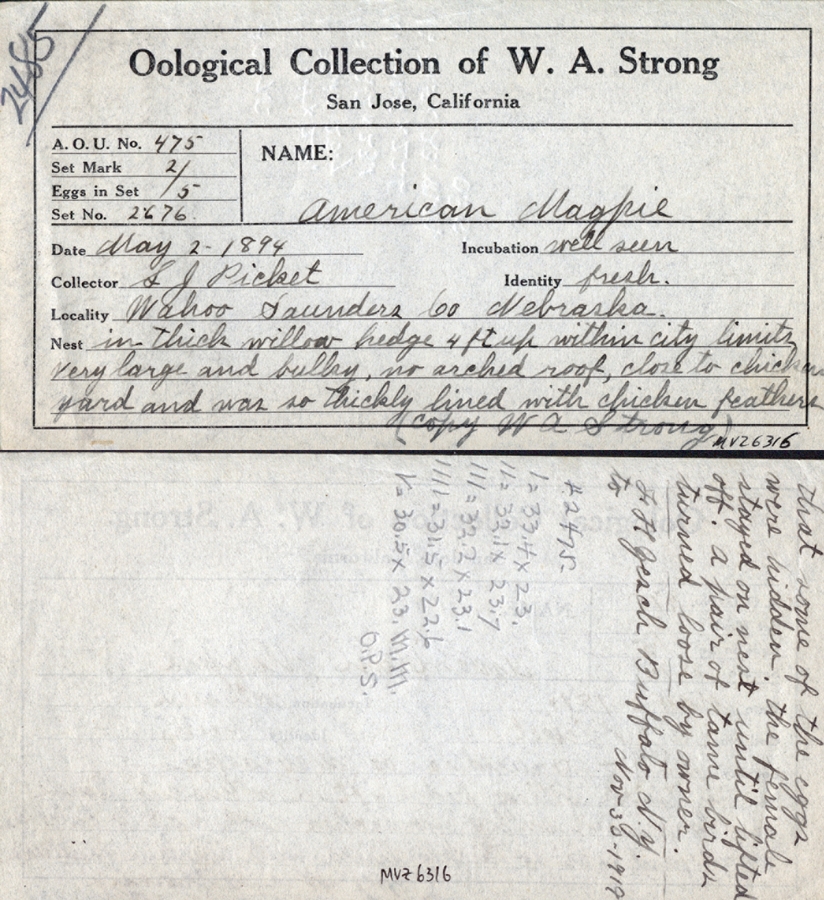 2485
Oological Collection of W. A. Strong
San Jose, California
A. O. U. No. 475
Set Mark 2/
Eggs in Set /5
Set No. 2676.
NAME:
American Magpie
Date May 2-1894
Incubation well seen
Collector S J Picket
Identity fresh.
Locality Wahoo Saunders Co Nebraska.
Nest in thick willow hedge 4 ft up within city limits
very large and bulky, no arched roof, close to chicken
yard and was so thickly lined with chicken feathers
(copy W A Strong)
MVZ6316
that some of the eggs
were hidden. the female
stayed on nest until lifted
off. a pair of tame birds
turned loose by owner.
Buffalo N.Y.
to
Nov-30-1919
#2475-
1= 33.4 x 23.
11= 33.1 x 23.7
111= 33.2 x 23.1
1111= 31.5 x 22.6
V= 30.5 x 23. M.M.
O.P.S.
MVZ6316